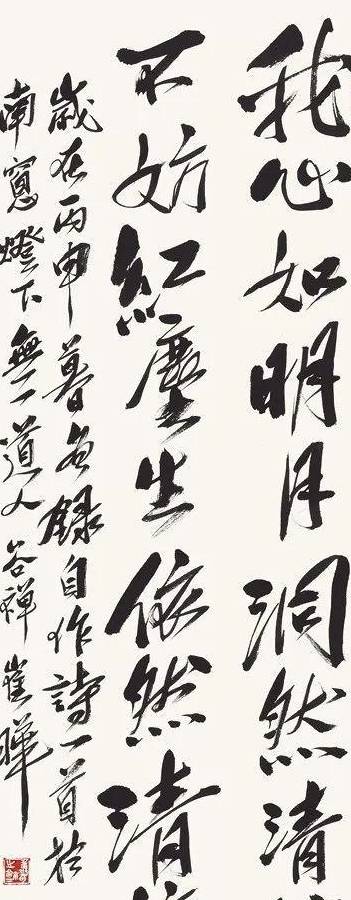 我心如明月洞然清
不妨紅塵生依然清
歲在丙申暮冬錄自作詩一首於
南窗燈下無一道人谷禪崔暉